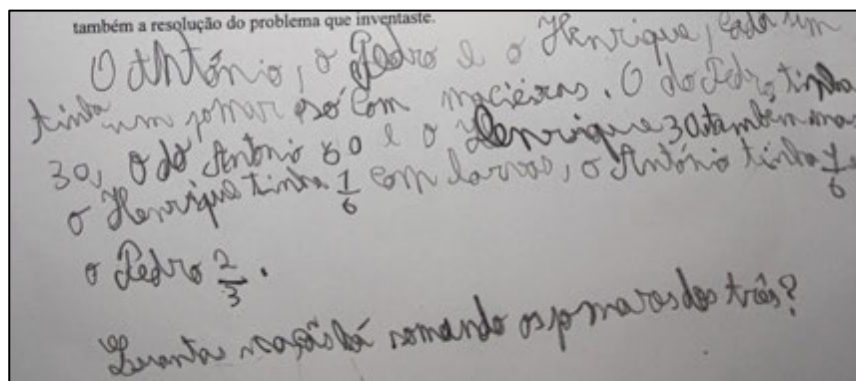 também a resolução do problema que inventaste.
O António, o Pedro e o Henrique, cada um
tinha um pomar só com macieiras. O do Pedro tinha
30, o do António 60 e o Henrique 30 também mas
o Henrique tinha 1/6 com larvas, o António tinha 1/6 e
o Pedro 2/3.
há somando os pomares dos três?